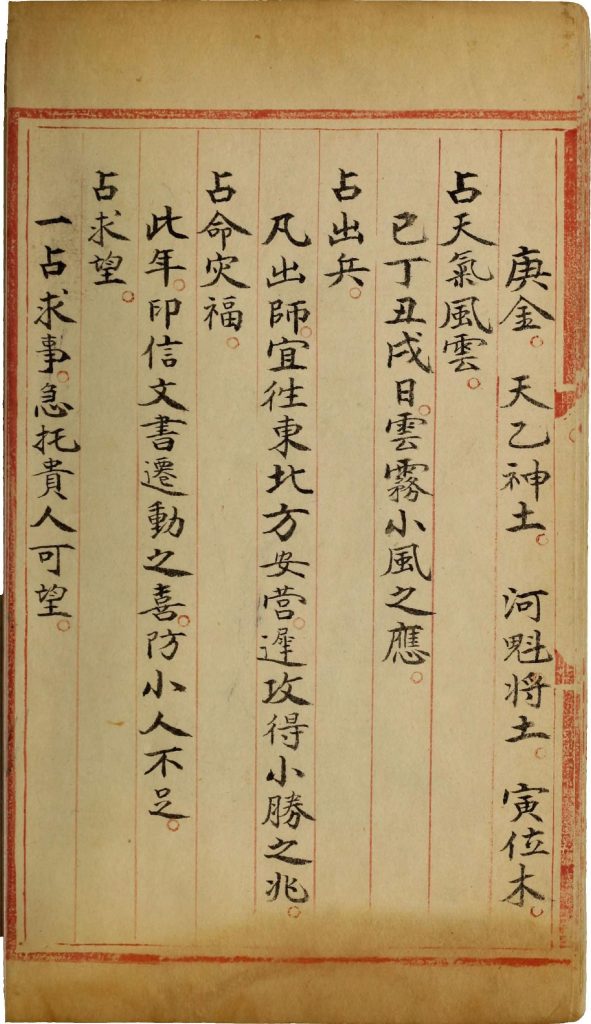 庚金。 天乙神土。 河魁将土。 寅位木。
占天氣風雲。
己丁丑戌日。雲霧小風之應。
占出兵。
凡出師。宜徃東北方安营。遲攻得小勝之兆。
占命灾福。
此年。印信文書遷動之喜。防小人不足。
占求望。
一占求事。急托貴人可望。